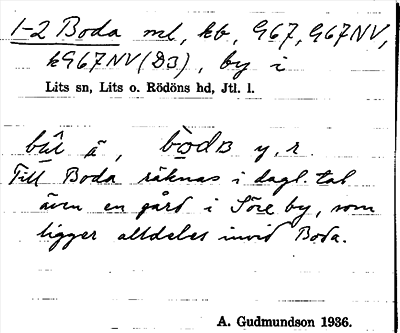 1-2 Boda ml, kb, G67, G67NV,
kG67NV(D3), by i
Lits sn, Lits o. Rödöns hd, Jtl. l.
ä, y, r
Till Boda räknas i dagl. tal
även en gård i Söre by, som
ligger alldeles invid Boda.
A. Gudmundson 1936.